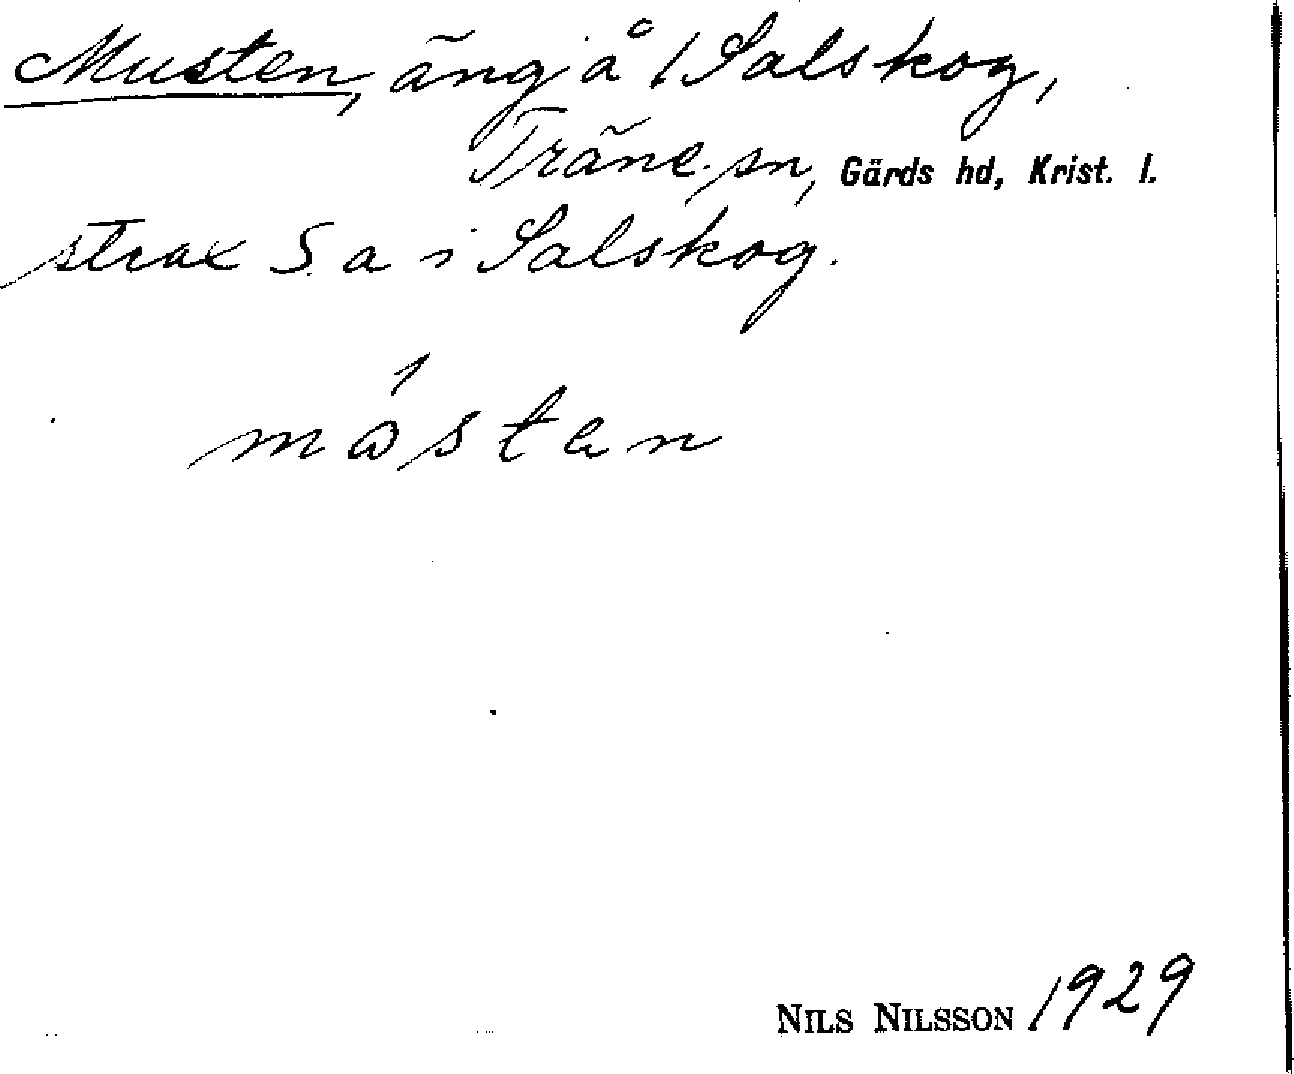 Musten, äng å 1 Salskog,
Träne sn, Gärds hd, Krist. l.
strax S. a i Salskog.
mɷ́sten
NILS NILSSON 1929